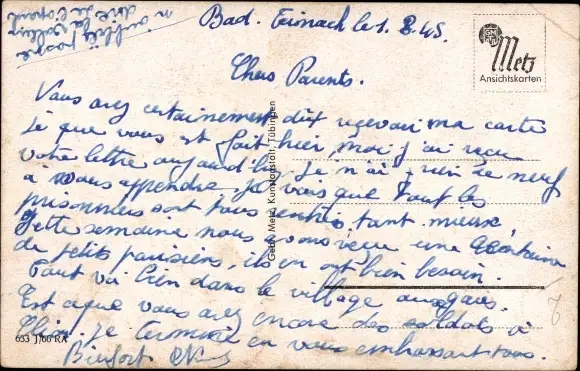 Bad. Teinach le 1. 8. 45.
Chers Parents.
Vous avez certainement dû recevoir ma carte
que vous est fait hier, moi j'ai reçu
votre lettre aujourd'hui, je n'ai rien de neuf
à vous apprendre. je vois que tout les
prisonniers sont tous rentrés, tant mieux,
Cette semaine nous avons reçu une
de petits parisiens, ils en ont bien besoin.
Tout va bien dans le village
Est ce que vous avez encore des soldats à
je termine en vous embrassant tous.
Metz
Ansichtskarten
Gebr. Metz, Kunstanstalt, Tübingen
653 J/60 RA